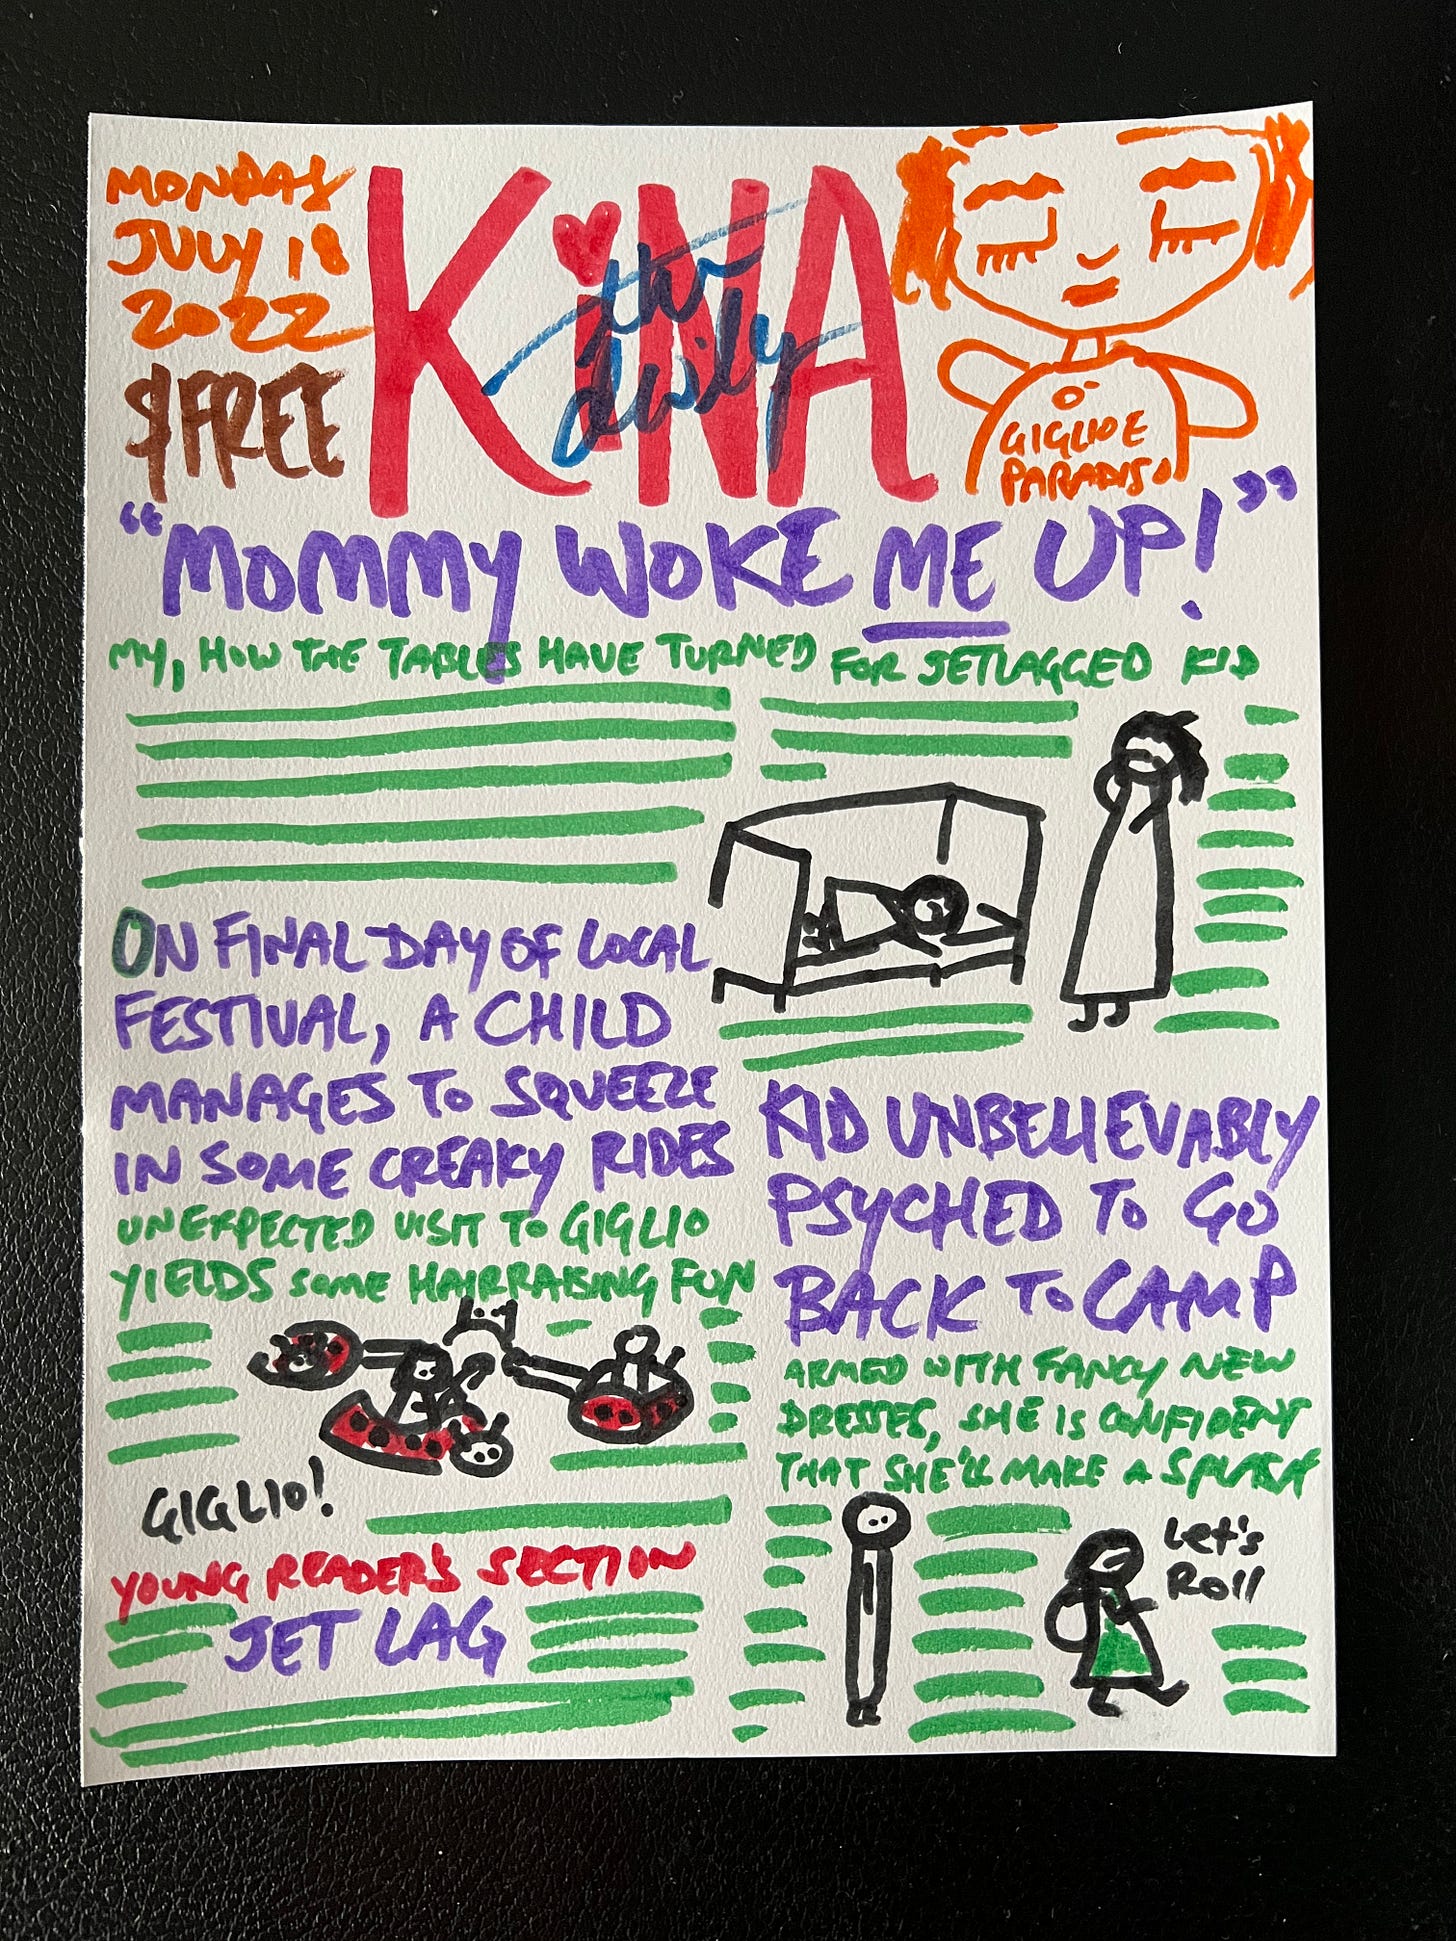 MONDAY
JULY 18
2022
$FREE
KiNA
the daily
GIGLIO E
PARADISO
"MOMMY WOKE ME UP!"
MY, HOW THE TABLES HAVE TURNED FOR JETLAGGED KID
ON FINAL DAY OF LOCAL
FESTIVAL, A CHILD
MANAGES TO SQUEEZE
IN SOME CREAKY RIDES
UNEXPECTED VISIT TO GIGLIO
YIELDS SOME HAIRRAISING FUN
GIGLIO!
YOUNG READER'S SECTION
JET LAG
KID UNBELIEVABLY
PSYCHED TO GO
BACK TO CAMP
ARMED WITH FANCY NEW
DRESSES, SHE IS CONFIDENT
THAT SHE'LL MAKE A SPLASH
Let's
Roll